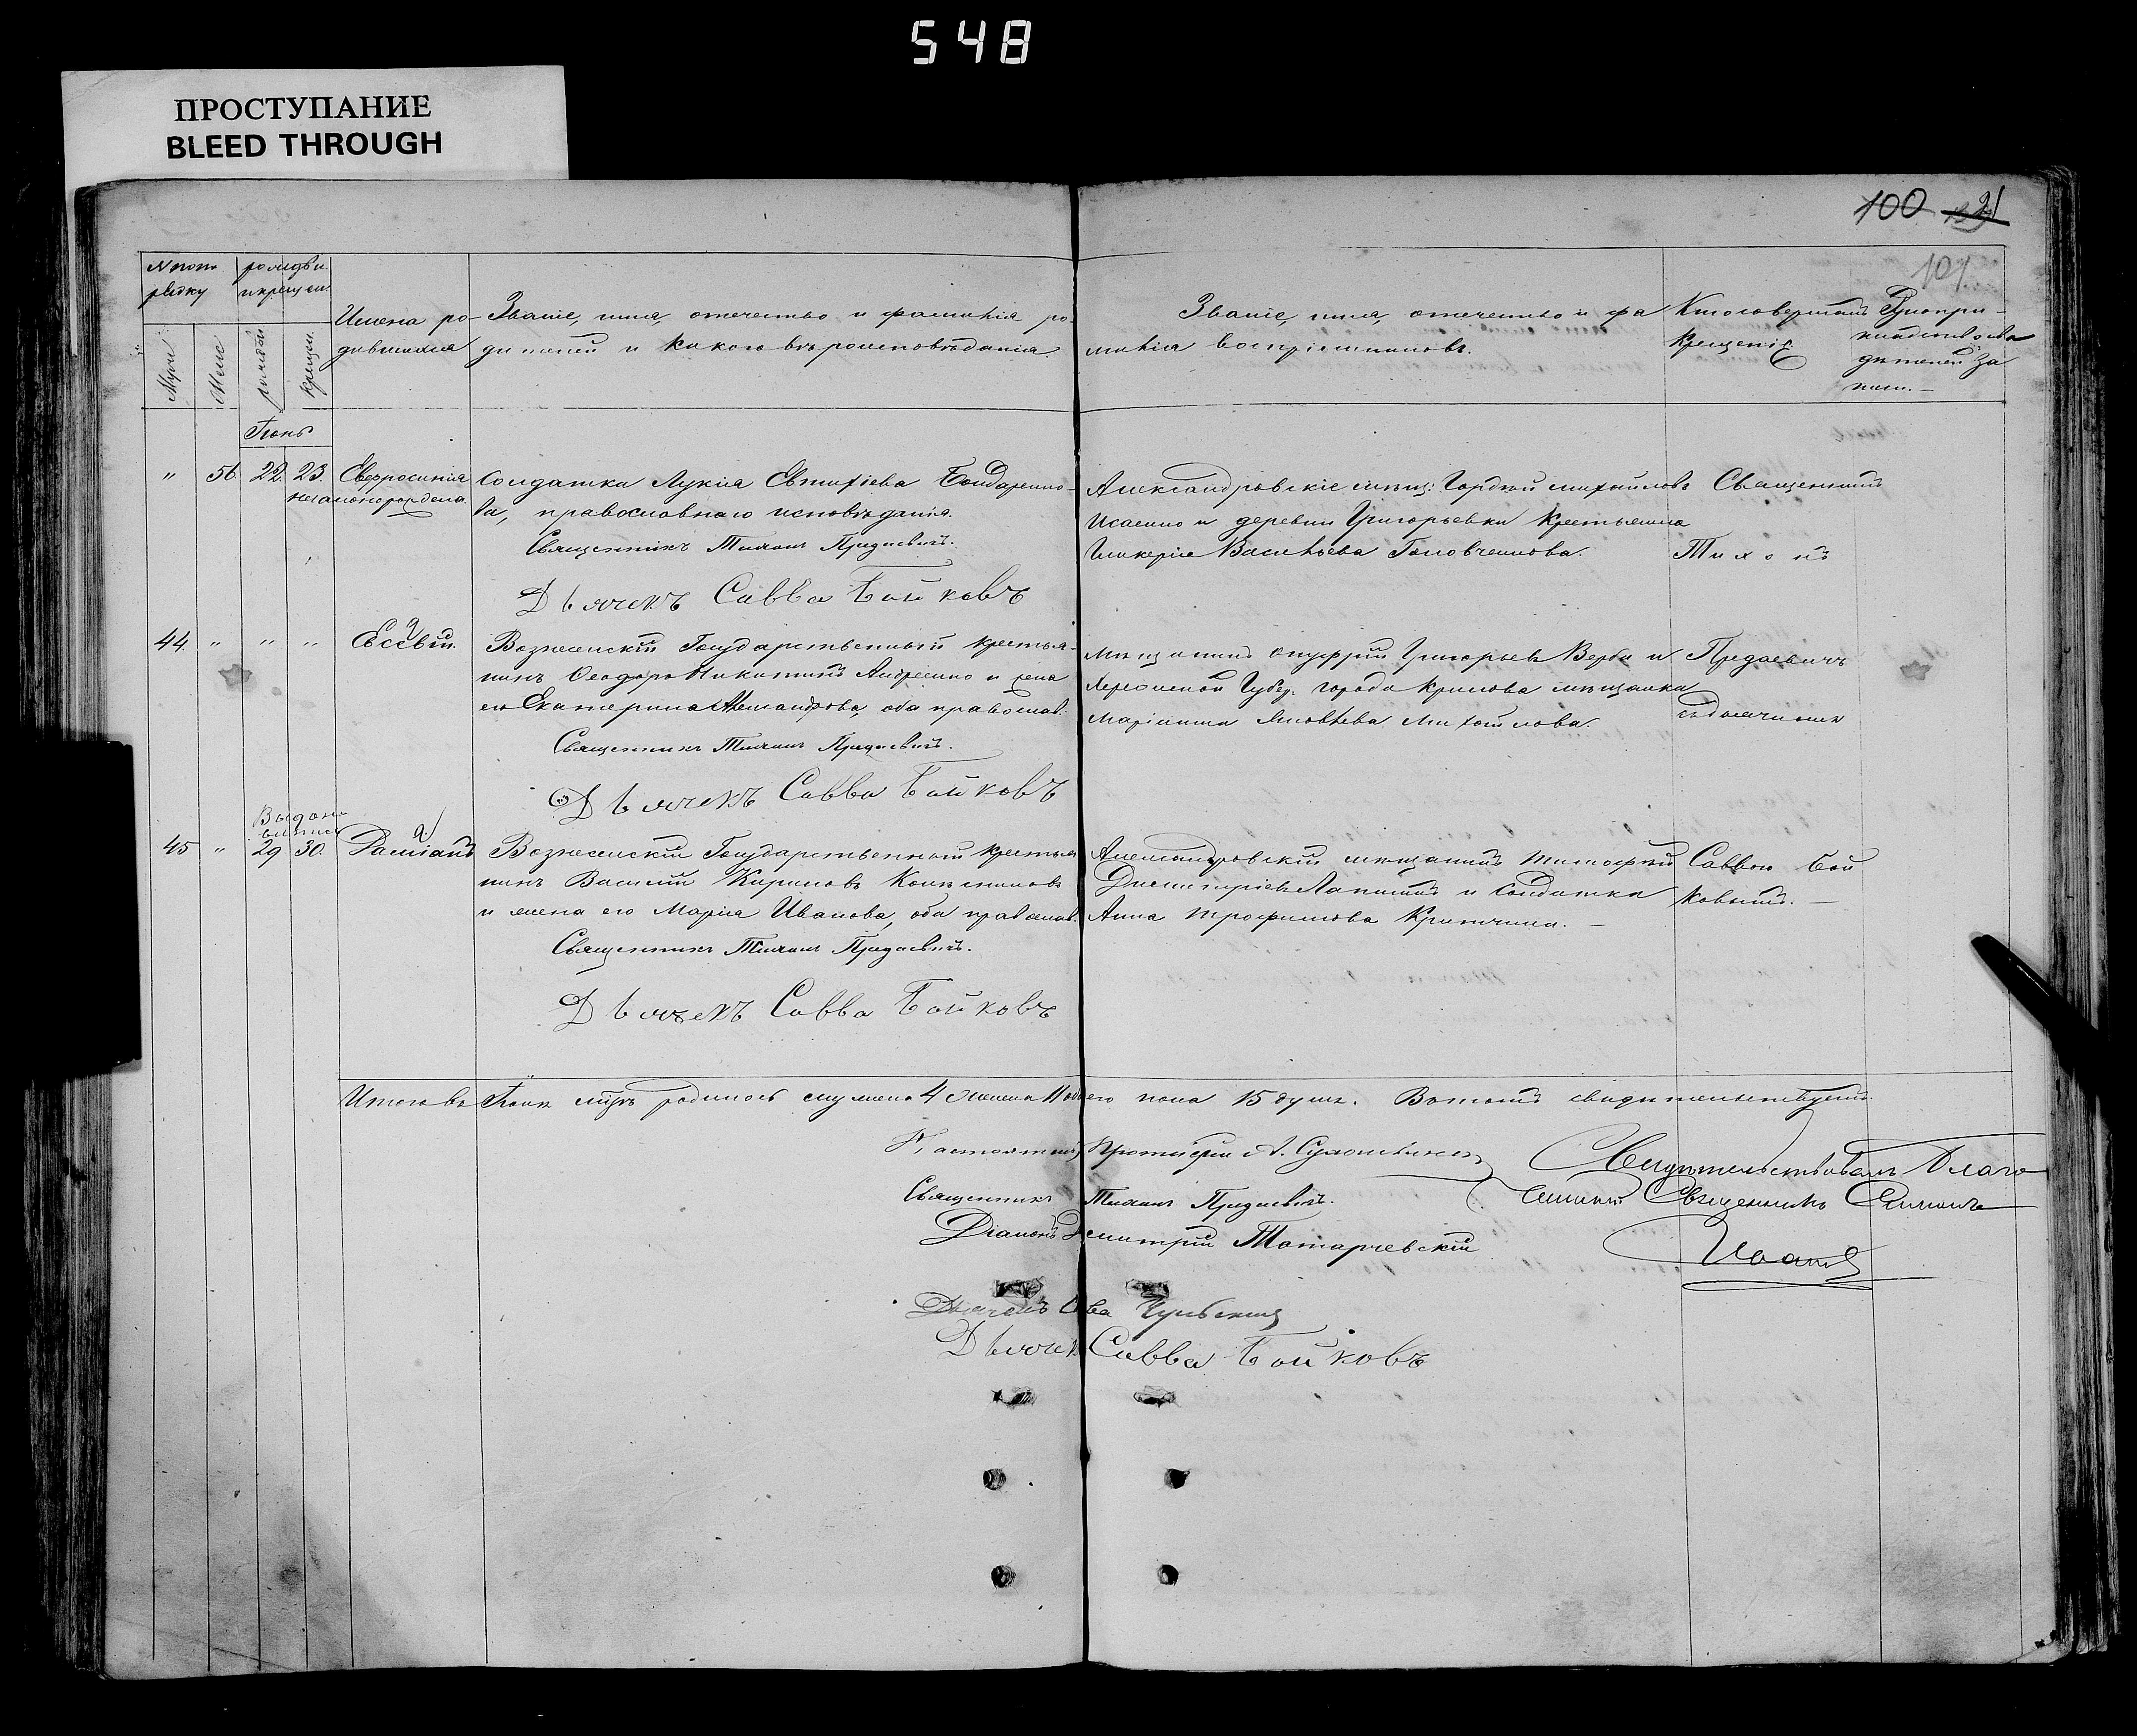 548
ПРОСТУПАНИЕ
BLEED THROUGH
100 21
101
№ по по
рядку
рожден.
и крещен.
Муж
Женс
рожден
крещен.
Имена ро-
дившихся
Званіе, имя, отчество и фамилія ро-
дителей и какого вѣроисповѣданія
Званіе, имя, отчество и фа
милія воспріемниковъ.
Кто совершалъ
крещеніе
Рукопри-
кладство сви
дѣтелей за
писи.
Іюнь
" 56 22. 23. Евфросинія
незаконорождена
Солдатка Лукія Евтихіева Бондаренко-
ва, православнаго исповѣданія.
Священникъ Тихонъ Предаевичъ.
Дьячекъ Савва Бойковъ
Александровскіе мѣщ: Гордѣй Михайловъ
Исаенко и деревни Григорьевки крестьянка
Гликерія Васильева Головченкова.
Священникъ
Тихонъ
44. " " " Евсевій.
Вознесенскій Государственный крестья-
нинъ Ѳеодоръ Никитинъ Андреенко и жена
его Екатерина Александрова, оба православ.
Священникъ Тихонъ Предаевичъ.
Дьячекъ Савва Бойковъ
Мѣщанинъ Онуфрій Григорьевъ Верба и
Херсонской Губер. города Крилова мѣщанка
Маріанна Яковлева Михайлова.
Предаевичъ
съ дьячкомъ
Выдана
выпись
45 " 29 30. Даміанъ
Вознесенскій Государственный крестья
нинъ Василій Кириловъ
и жена его Марія Иванова, оба православ.
Священникъ Тихонъ Предаевичъ.
Дьячекъ Савва Бойковъ
Александровскій мѣщанинъ Тимофѣй
Димитріевъ Лапинъ и солдатка
Анна Трофимова
Саввою Бой
ковымъ.
Итого въ Іюнѣ мцѣ родилось мужеска 4 женска 11 обоего пола 15 душъ. Въ томъ свидѣтельствуемъ.
Настоятель, Протоіерей А.
Священникъ Тихонъ Предаевичъ.
Діаконъ Димитрій Татарчевскій
Дьячекъ
Дьячекъ Савва Бойковъ
Свидѣтельствовалъ Благо
чинный Священникъ Симонъ